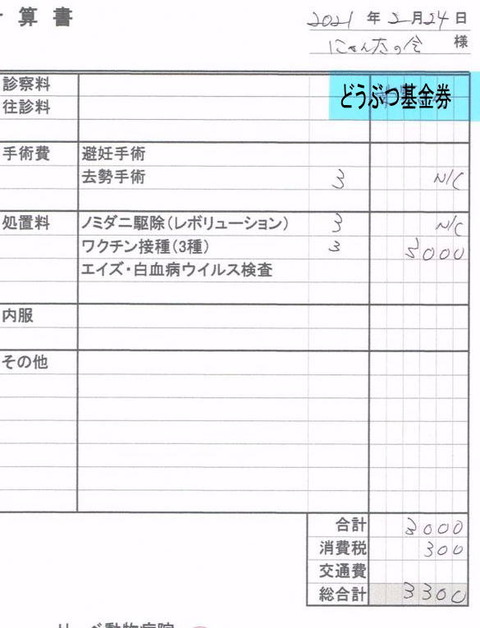 計算書
2021年2月24日
にゃん太の会 様
診察料
どうぶつ基金券
往診料
手術費 避妊手術
去勢手術 3 N/C
処置料 ノミダニ駆除(レボリューション) 3 N/C
ワクチン接種(3種) 3 3000
エイズ・白血病ウイルス検査
内服
その他
合計 3000
消費税 300
交通費
総合計 3300